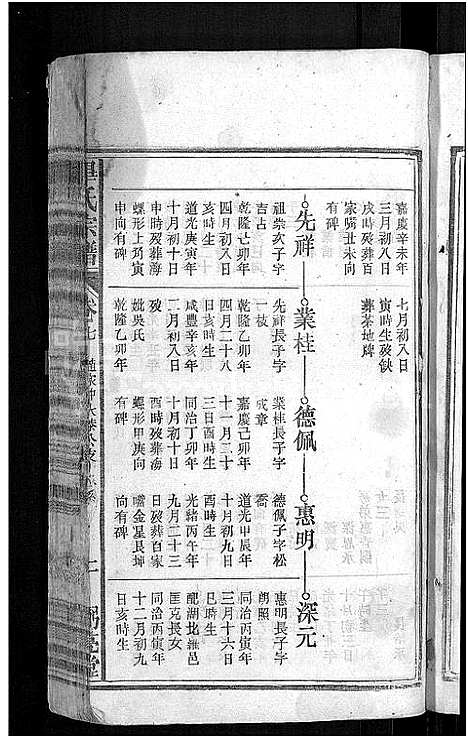 嘉慶辛未年
三月初八日
戌時歿葬百
家嘴丑未向
有碑
七月初八日
寅時生歿缺
葬茶地碑
先祥
祖崇次子字
吉占
乾隆己卯年
四月初八日
亥時生
道光庚寅年
十月初十日
申時歿葬海
螺形上角寅
申向有碑
業桂
先祥長子字
一枝
乾隆乙卯年
四月二十八
日亥時生
咸豐辛亥年
二月初八日
歿
妣吳氏
乾隆乙卯年
德佩
業桂長子字
成章
嘉慶己卯年
十一月二十
三日酉時生
同治丁卯年
十月初十日
酉時歿葬海
螺形甲庚向
有碑
惠明
德佩子字松
喬
道光甲辰年
十月初九日
酉時生
光緒丙午年
九月二十三
日歿葬百家
嘴金星艮坤
向有碑
深元
惠明長子字
朗照
同治丙寅年
三月十六日
巳時生
配湖北羅邑
匡克長女
同治丙寅年
十二月初九
日亥時生
氏宗譜
卷七